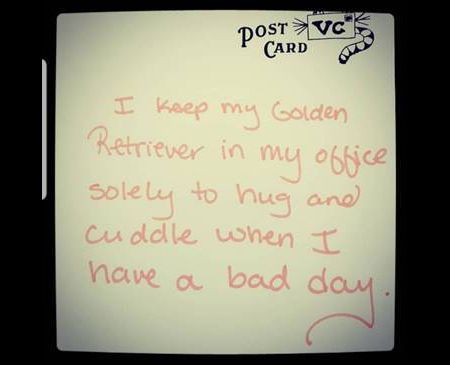 POST CARD
VC
I keep my Golden
Retriever in my office
solely to hug and
cuddle when I
have a bad day.